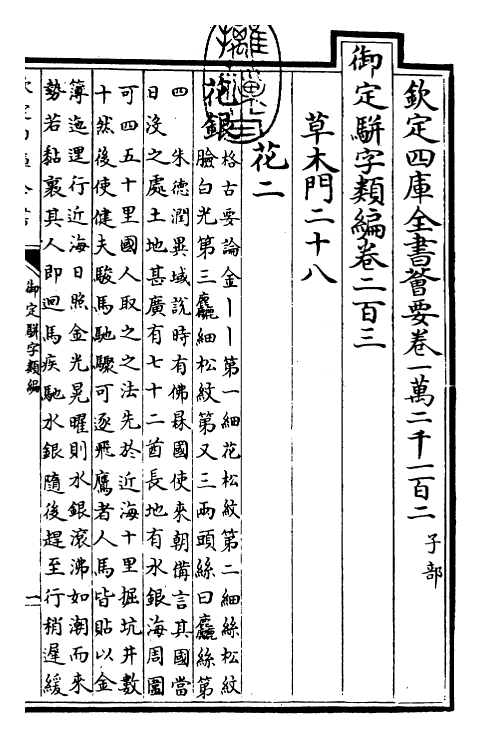 欽定四庫全書薈要卷一萬二千一百二 子部
御定駢字類編卷二百三
草木門二十八
花二
花銀 格古要論金丨丨第一細花松紋第二細絲松紋
臉白光第三麤細松紋第又三兩頭絲曰麤絲第
四 朱德潤異域說時有佛菻國使來朝備言其國當
日沒之處土地甚廣有七十二酋長地有水銀海周圍
可四五十里國人取之之法先於近海十里掘坑井數
十然後使健夫駿馬馳驟可逐飛鷹者人馬皆貼以金
簿迤邐行近海日照金光晃曜則水銀滾沸如潮而來
勢若黏裹其人即迴馬疾馳水銀隨後趕至行稍遲緩
御定駢字類編
一